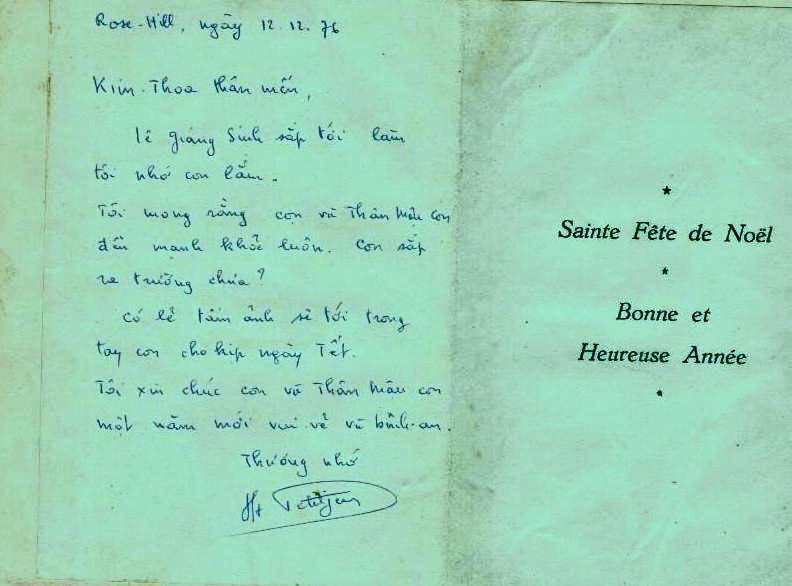 Rose-Hill, ngày 12.12.76
Kim-Thoa thân mến,
lễ giáng sinh sắp tới làm
tôi nhớ con lắm.
Tôi mong rằng con và Thân Mẫu con
đều mạnh khoẻ luôn. Con sắp
ra trường chưa?
Có lẽ tấm ảnh sẽ tới trong
tay con cho kịp ngày Tết.
Tôi xin chúc con và Thân Mẫu con
một năm mới vui vẻ và bình-an.
Thương nhớ
Petitjean
★
Sainte Fête de Noël
★
Bonne et
Heureuse Année
★